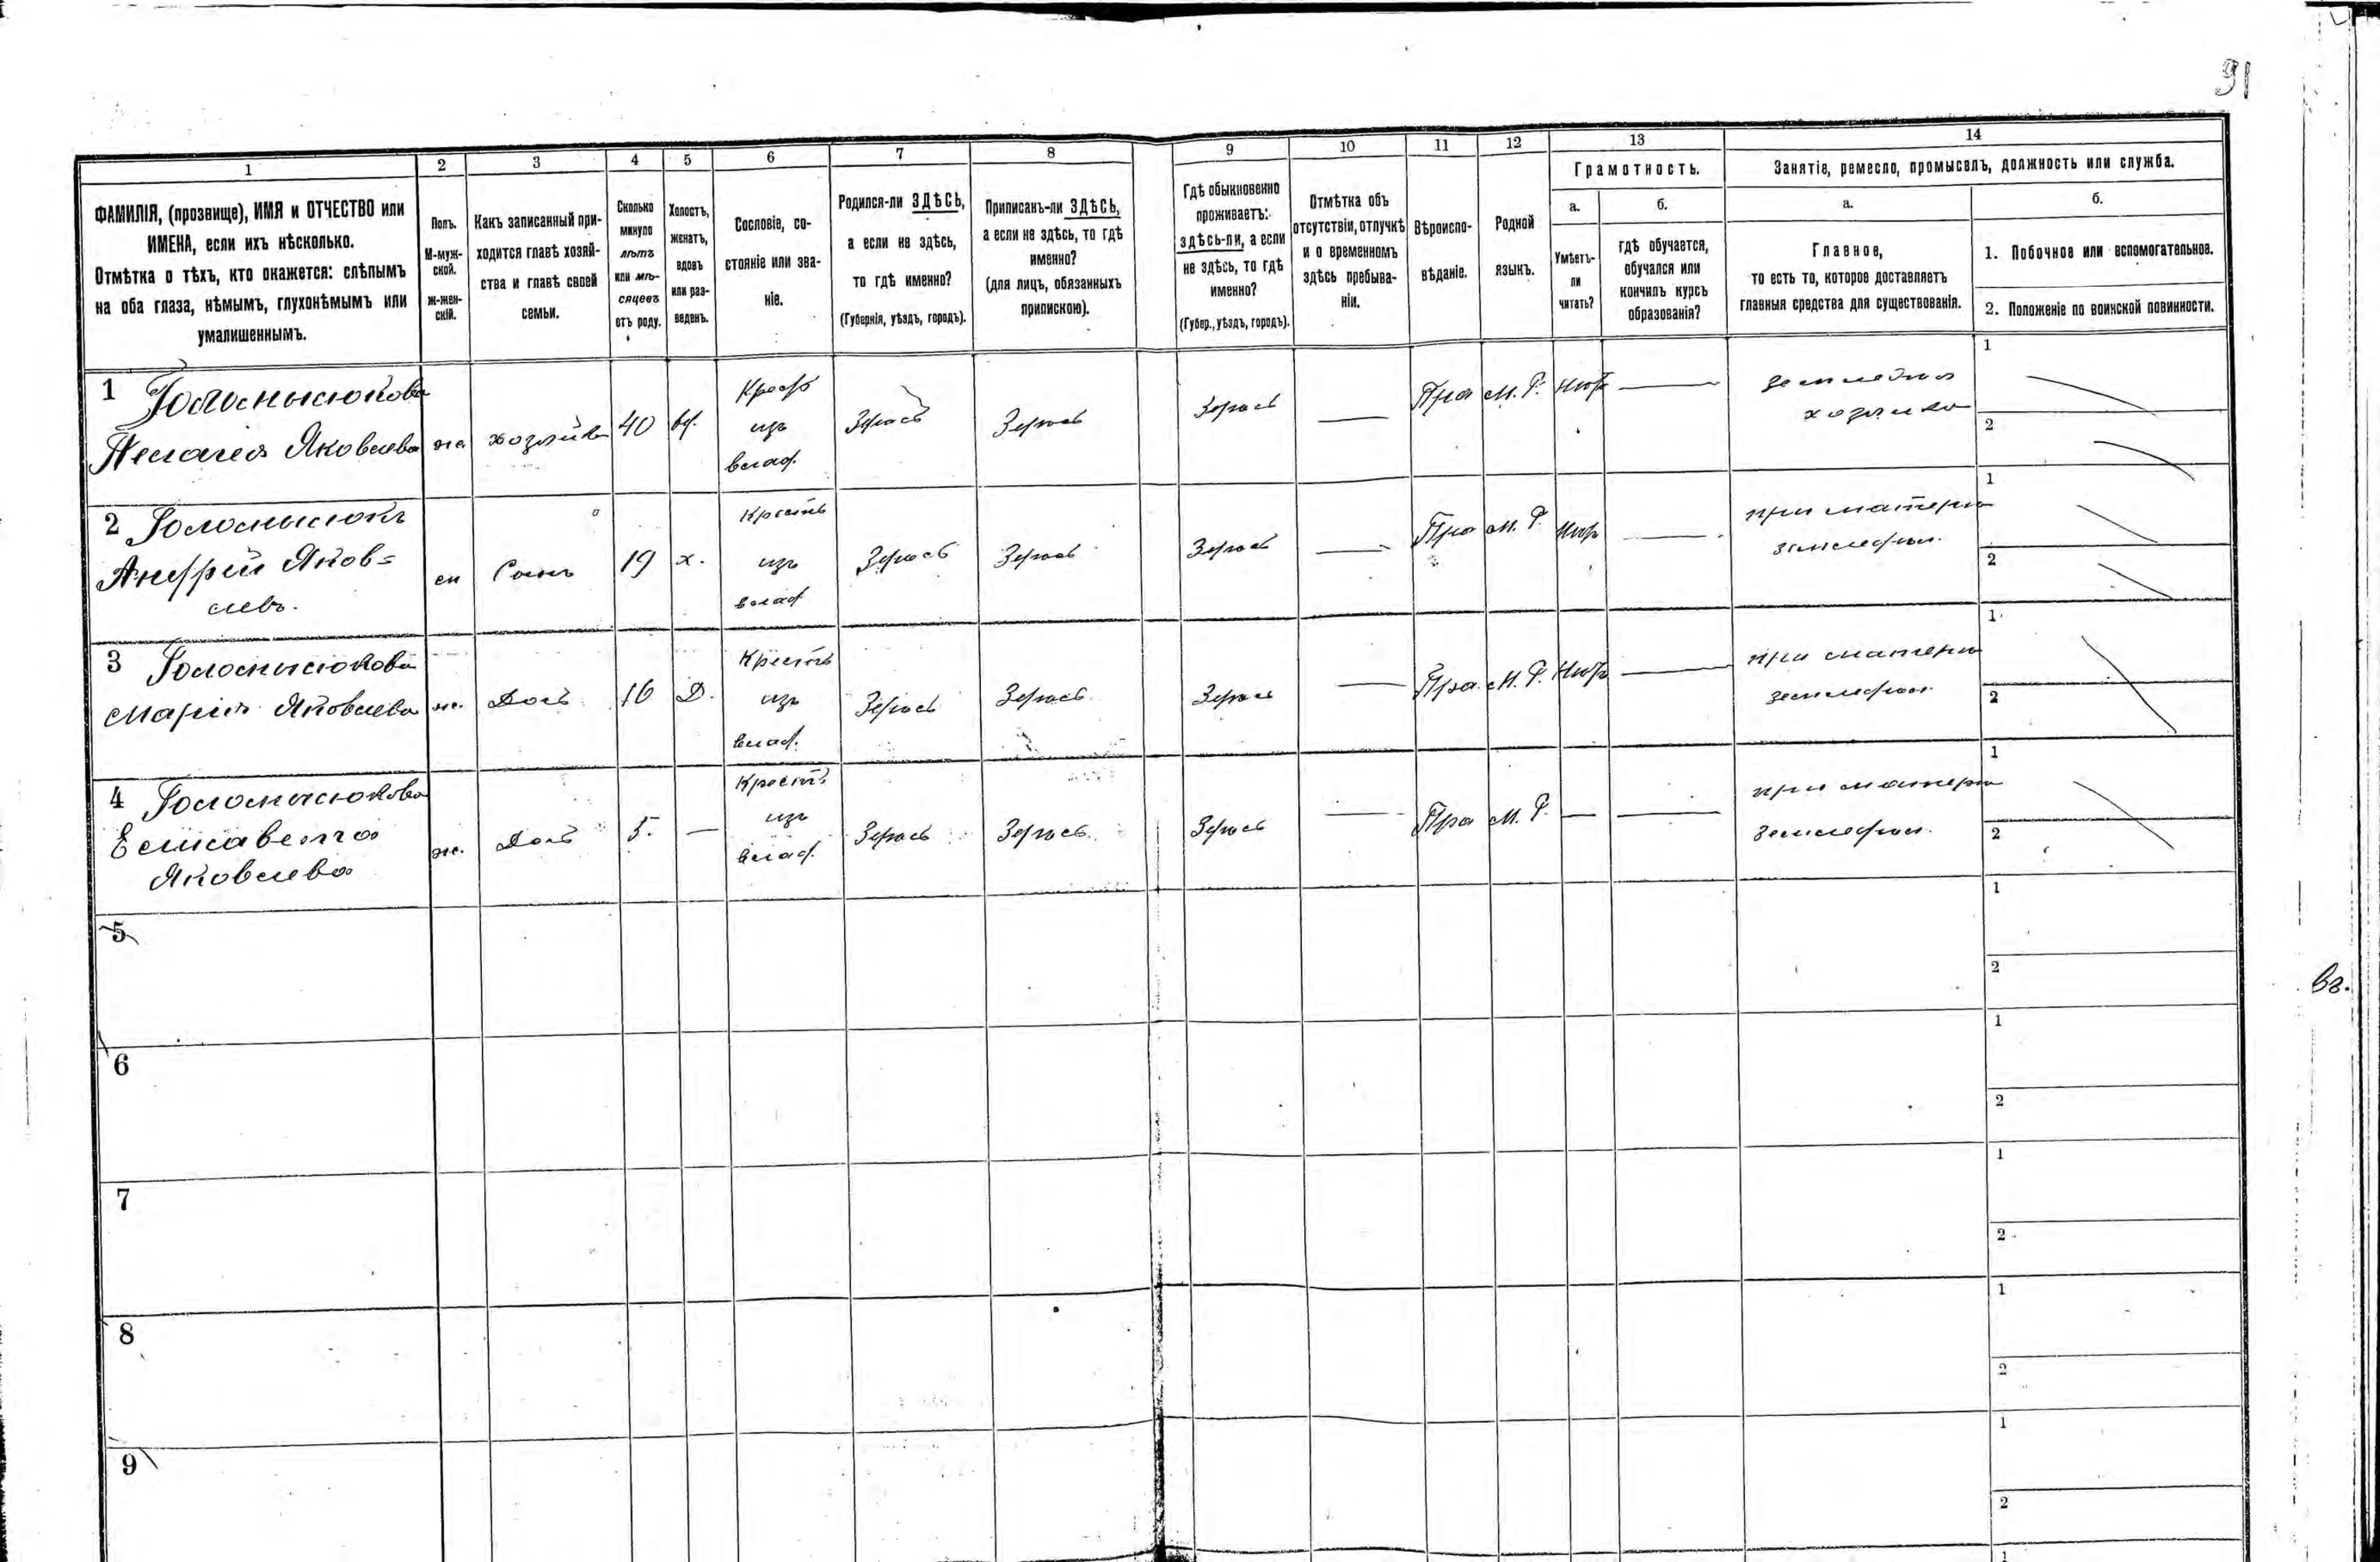 91
1 2 3 4 5 6 7 8 9 10 11 12 13 14
ФАМИЛІЯ, (прозвище), ИМЯ и ОТЧЕСТВО или
ИМЕНА, если ихъ нѣсколько.
Отмѣтка о тѣхъ, кто окажется: слѣпымъ
на оба глаза, нѣмымъ, глухонѣмымъ или
умалишеннымъ.
Полъ.
М-муж-
ской.
Ж-жен-
скій.
Какъ записанный при-
ходится главѣ хозяй-
ства и главѣ своей
семьи.
Сколько
минуло
лѣтъ
или мѣ-
сяцевъ
отъ роду.
Холостъ,
женатъ,
вдовъ
или раз-
веденъ.
Сословіе, со-
стояніе или зва-
ніе.
Родился-ли ЗДѢСЬ,
а если не здѣсь,
то гдѣ именно?
(Губернія, уѣздъ, городъ).
Приписанъ-ли ЗДѢСЬ,
а если не здѣсь, то гдѣ
именно?
(для лицъ, обязанныхъ
припискою).
Гдѣ обыкновенно
проживаетъ:
здѣсь-ли, а если
не здѣсь, то гдѣ
именно?
(Губер., уѣздъ, городъ).
Отмѣтка объ
отсутствіи, отлучкѣ
и о временномъ
здѣсь пребыва-
ніи.
Вѣроиспо-
вѣданіе.
Родной
языкъ.
Грамотность.
а.
Умѣетъ-
ли
читать?
б.
гдѣ обучается,
обучался или
кончилъ курсъ
образованія?
Занятіе, ремесло, промыселъ, должность или служба.
а.
Главное,
то есть то, которое доставляетъ
главныя средства для существованія.
б.
1. Побочное или вспомогательное.
2. Положеніе по воинской повинности.
1 Голомысюкова
Пелагея Яковлева
хозяйка
40
вд.
Крест
изъ
влад.
Здѣсь
Здѣсь
Здѣсь
Пра
М. Р.
нѣтъ
хозяйка
1
2
2 Голомысюкъ
Андрей Яков=
левъ.
Сынъ
19
х.
Крестъ
изъ
влад
Здѣсь
Здѣсь
Здѣсь
Пра
М. Р.
нѣтъ
при матери
земледѣл.
1
2
3 Голомысюкова
Марія Яковлева
ж.
Дочь
16
Д.
Крестъ
изъ
влад.
Здѣсь
Здѣсь
Здѣсь
Пра
М. Р.
нѣтъ
при матери
земледѣл.
1
2
4 Голомысюкова
Елисавета
Яковлева
ж.
Дочь
5.
Крест.
изъ
влад.
Здѣсь
Здѣсь
Здѣсь
Пра
М. Р.
при матери
земледѣл.
1
2
5
1
2
6
1
2
7
1
2
8
1
2
9
1
2
1